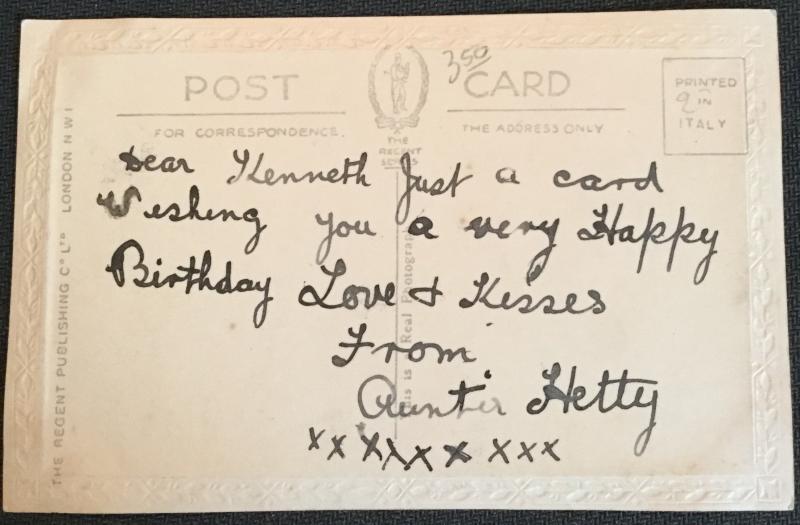 POST CARD
350
PRINTED
IN
ITALY
FOR CORRESPONDENCE.
THE ADDRESS ONLY
THE
REGENT
SERIES
Dear Kenneth Just a card
Wishing you a very Happy
Birthday Love & Kisses
From
Auntie Hetty
xx xxxx xxx
This is a Real Photograph
THE REGENT PUBLISHING Co LTD LONDON N W 1